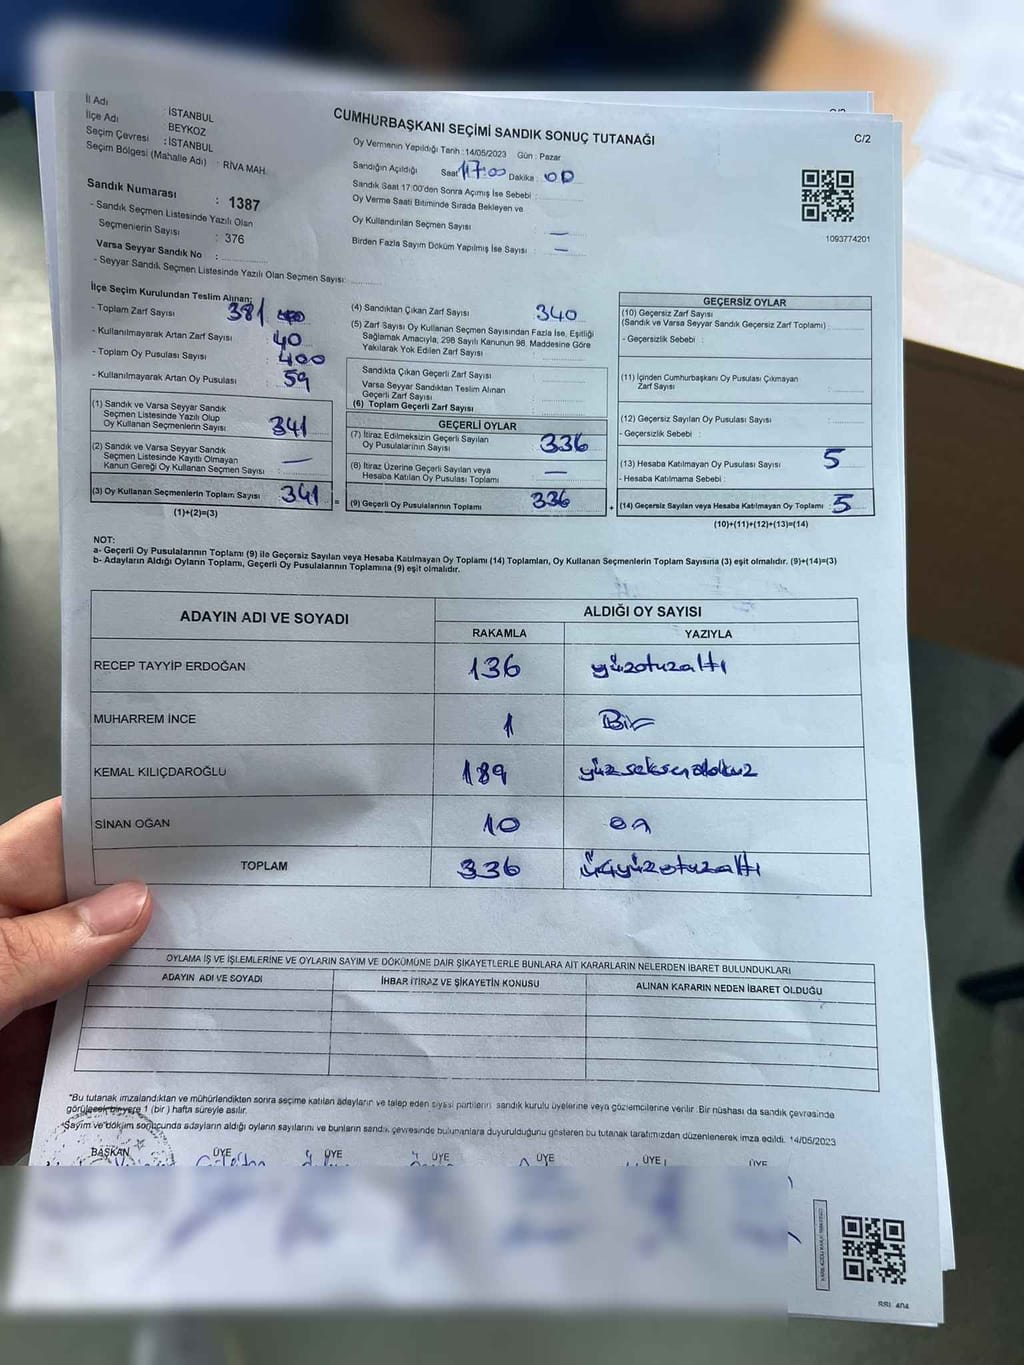 C/2
İl Adı : İSTANBUL
İlçe Adı : BEYKOZ
Seçim Çevresi : İSTANBUL
Seçim Bölgesi (Mahalle Adı) : RİVA MAH.
CUMHURBAŞKANI SEÇİMİ SANDIK SONUÇ TUTANAĞI
Oy Vermenin Yapıldığı Tarih : 14/05/2023 Gün : Pazar
Sandığın Açıldığı Saat 17:00 Dakika : 00
Sandık Saat 17:00'den Sonra Açımış İse Sebebi :
Oy Verme Saati Bitiminde Sırada Bekleyen ve
Oy Kullandırılan Seçmen Sayısı : —
Birden Fazla Sayım Döküm Yapılmış İse Sayısı : —
1093774201
Sandık Numarası : 1387
- Sandık Seçmen Listesinde Yazılı Olan
Seçmenlerin Sayısı : 376
Varsa Seyyar Sandık No :
- Seyyar Sandık Seçmen Listesinde Yazılı Olan Seçmen Sayısı:
İlçe Seçim Kurulundan Teslim Alınan;
- Toplam Zarf Sayısı 381
- Kullanılmayarak Artan Zarf Sayısı 40
- Toplam Oy Pusulası Sayısı : 400
- Kullanılmayarak Artan Oy Pusulası : 59
(1) Sandık ve Varsa Seyyar Sandık
Seçmen Listesinde Yazılı Olup
Oy Kullanan Seçmenlerin Sayısı : 341
(2) Sandık ve Varsa Seyyar Sandık
Seçmen Listesinde Kayıtlı Olmayan
Kanun Gereği Oy Kullanan Seçmen Sayısı : —
(3) Oy Kullanan Seçmenlerin Toplam Sayısı : 341 =
(1)+(2)=(3)
(4) Sandıktan Çıkan Zarf Sayısı 340
(5) Zarf Sayısı Oy Kullanan Seçmen Sayısından Fazla İse, Eşitliği
Sağlamak Amacıyla, 298 Sayılı Kanunun 98. Maddesine Göre
Yakılarak Yok Edilen Zarf Sayısı :
Sandıkta Çıkan Geçerli Zarf Sayısı :
Varsa Seyyar Sandıktan Teslim Alınan
Geçerli Zarf Sayısı :
(6) Toplam Geçerli Zarf Sayısı :
GEÇERLİ OYLAR
(7) İtiraz Edilmeksizin Geçerli Sayılan
Oy Pusulalarının Sayısı : 336
(8) İtiraz Üzerine Geçerli Sayılan veya
Hesaba Katılan Oy Pusulası Toplamı : —
(9) Geçerli Oy Pusulalarının Toplamı : 336 +
GEÇERSİZ OYLAR
(10) Geçersiz Zarf Sayısı
(Sandık ve Varsa Seyyar Sandık Geçersiz Zarf Toplamı) :
- Geçersizlik Sebebi :
(11) İçinden Cumhurbaşkanı Oy Pusulası Çıkmayan
Zarf Sayısı :
(12) Geçersiz Sayılan Oy Pusulası Sayısı :
- Geçersizlik Sebebi :
(13) Hesaba Katılmayan Oy Pusulası Sayısı : 5
- Hesaba Katılmama Sebebi :
(14) Geçersiz Sayılan veya Hesaba Katılmayan Oy Toplamı : 5
(10)+(11)+(12)+(13)=(14)
NOT:
a- Geçerli Oy Pusulalarının Toplamı (9) ile Geçersiz Sayılan veya Hesaba Katılmayan Oy Toplamı (14) Toplamları, Oy Kullanan Seçmenlerin Toplam Sayısına (3) eşit olmalıdır. (9)+(14)=(3)
b- Adayların Aldığı Oyların Toplamı, Geçerli Oy Pusulalarının Toplamına (9) eşit olmalıdır.
ADAYIN ADI VE SOYADI ALDIĞI OY SAYISI
RAKAMLA YAZIYLA
RECEP TAYYİP ERDOĞAN 136 yüzotuzaltı
MUHARREM İNCE 1 Bir
KEMAL KILIÇDAROĞLU 189 yüzseksendokuz
SİNAN OĞAN 10 on
TOPLAM 336 üçyüzotuzaltı
OYLAMA İŞ VE İŞLEMLERİNE VE OYLARIN SAYIM VE DÖKÜMÜNE DAİR ŞİKAYETLERLE BUNLARA AİT KARARLARIN NELERDEN İBARET BULUNDUKLARI
ADAYIN ADI VE SOYADI İHBAR İTİRAZ VE ŞİKAYETİN KONUSU ALINAN KARARIN NEDEN İBARET OLDUĞU
*Bu tutanak imzalandıktan ve mühürlendikten sonra seçime katılan adayların ve talep eden siyasi partilerin sandık kurulu üyelerine veya gözlemcilerine verilir. Bir nüshası da sandık çevresinde
görülecek bir yere 1 (bir) hafta süreyle asılır.
*Sayım ve döküm sonucunda adayların aldığı oyların sayılarını ve bunların sandık çevresinde bulunanlara duyurulduğunu gösteren bu tutanak tarafımızdan düzenlenerek imza edildi. 14/05/2023
BAŞKAN ÜYE ÜYE ÜYE ÜYE ÜYE ÜYE
SSI. 404